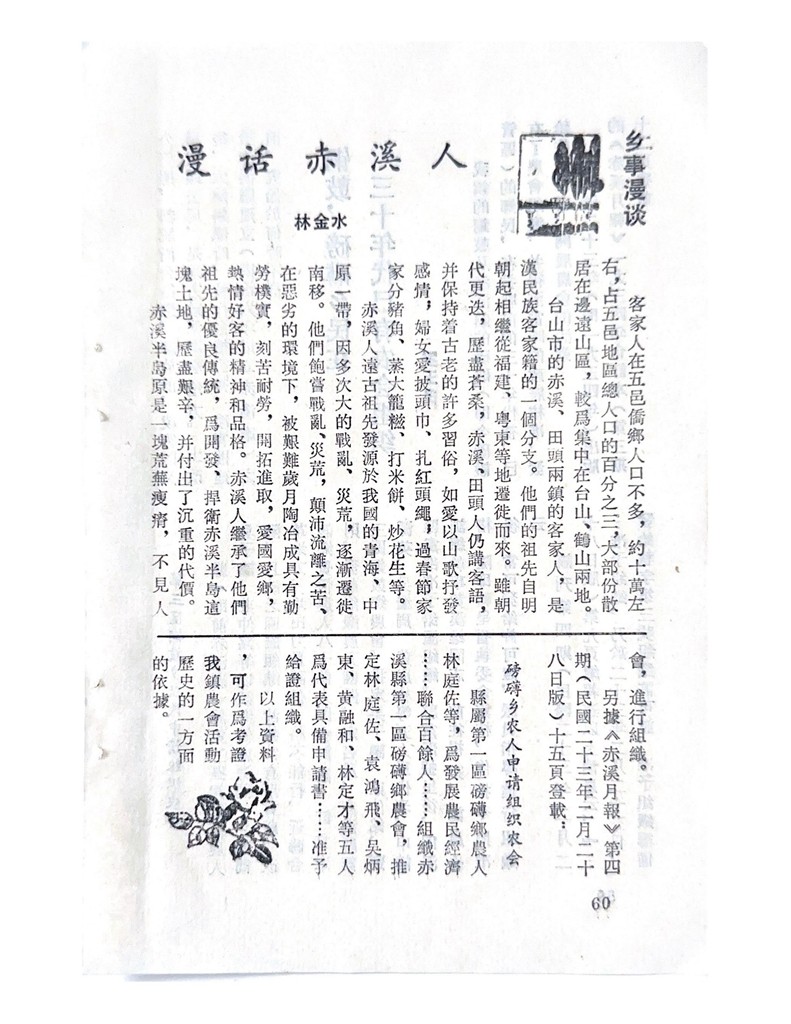 乡事漫谈
漫话赤溪人
林金水
客家人在五邑僑鄉人口不多，約十萬左
右，占五邑地區總人口的百分之三，大部份散
居在邊遠山區，較爲集中在台山、鶴山兩地。
台山市的赤溪、田頭兩鎮的客家人，是
漢民族客家籍的一個分支。他們的祖先自明
朝起相繼從福建、粵東等地遷徙而來。雖朝
代更迭，歷盡蒼桑，赤溪、田頭人仍講客語，
并保持着古老的許多習俗，如愛以山歌抒發
感情，婦女愛披頭巾、扎紅頭繩，過春節家
家分豬角、蒸大籠糍、打米餅、炒花生等。
赤溪人遠古祖先發源於我國的青海、中
原一帶，因多次大的戰亂、災荒，逐漸遷徙
南移。他們飽嘗戰亂、災荒，顛沛流離之苦、
在惡劣的環境下，被艱難歲月陶冶成具有勤
勞樸實，刻苦耐勞，開拓進取，愛國愛鄉，
熱情好客的精神和品格。赤溪人繼承了他們
祖先的優良傳統，爲開發、捍衛赤溪半島這
塊土地，歷盡艱辛，并付出了沉重的代價。
赤溪半島原是一塊荒蕪瘦瘠，不見人
會，進行組織。
另據《赤溪月報》第四
期（民國二十三年二月二十
八日版）十五頁登載：
磅礴乡农人申请组织农会
縣屬第一區磅礴鄉農人
林庭佐等，爲發展農民經濟
……聯合百餘人……組織赤
溪縣第一區磅礴鄉農會，推
定林庭佐、袁鴻飛、吴炳
東、黄融和、林定才等五人
爲代表具備申請書……准予
給證組織。
以上資料
，可作爲考證
我鎮農會活動
歷史的一方面
的依據。
60